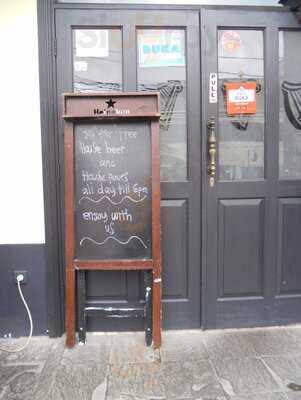 BUKA
PULL
BUKA
Heineken
House beer
and
House pours
all day till 6pm
enjoy with
us